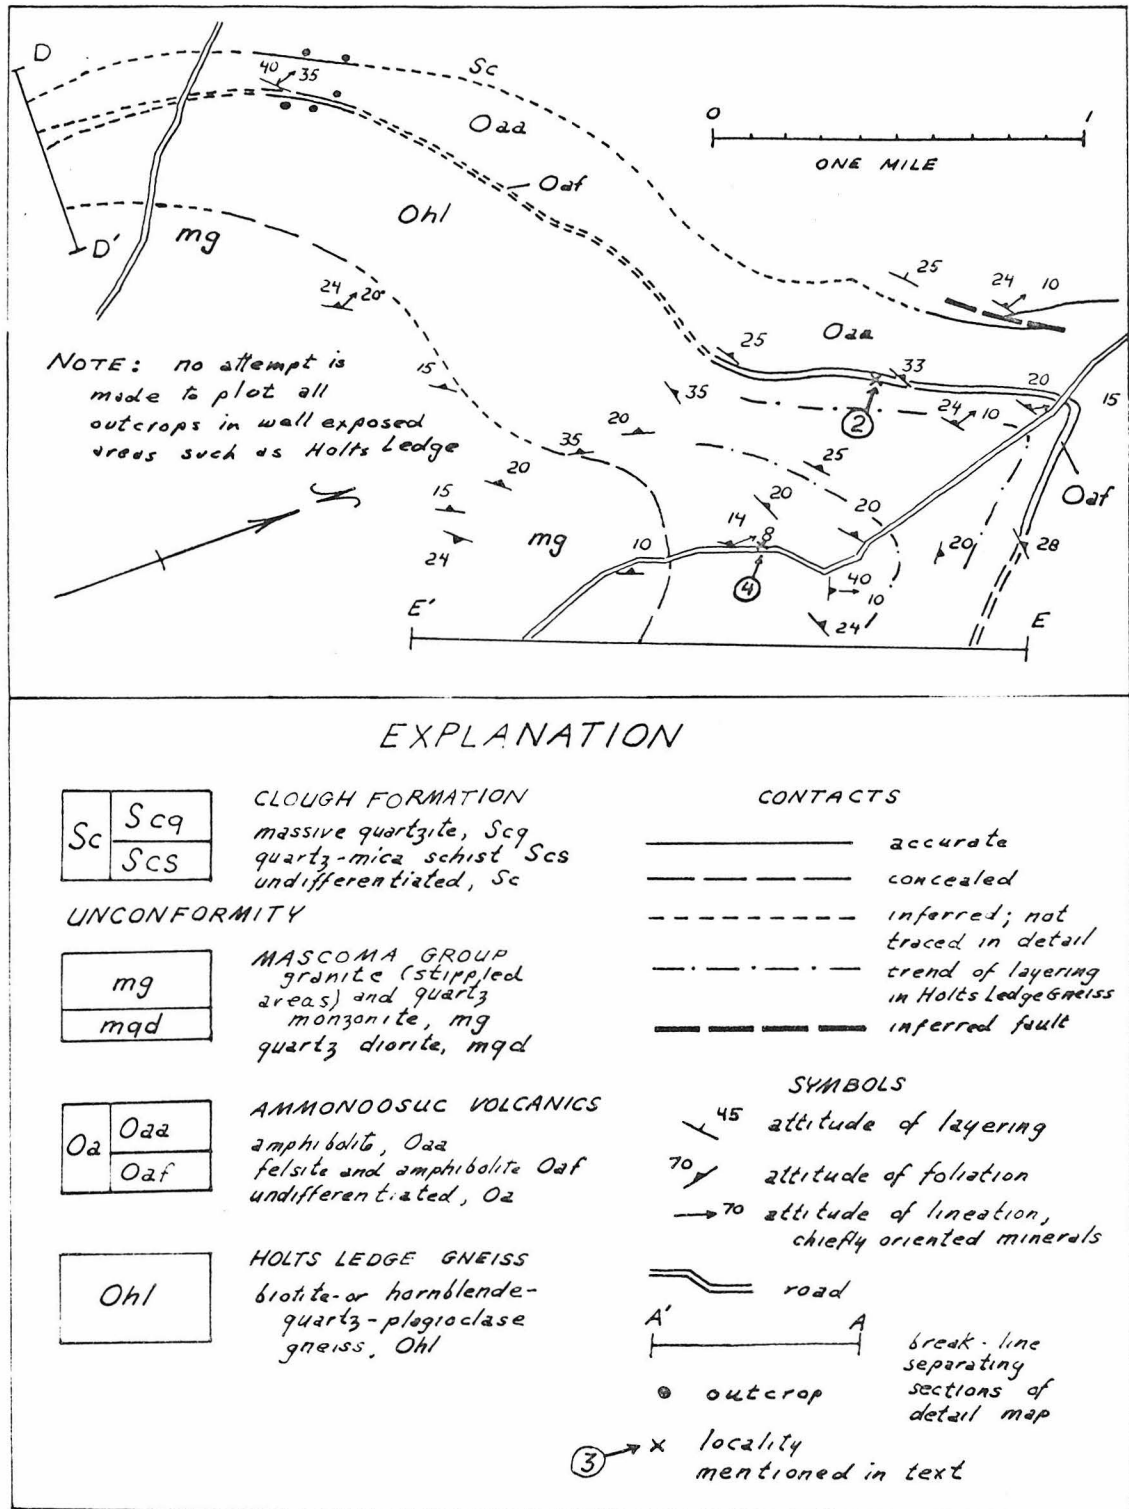 D
40 35
Sc
Oaa
0 1
ONE MILE
Oaf
Ohl
D'
mg
24 20°
25
24 10
Oaa
NOTE: no attempt is
made to plot all
outcrops in well exposed
areas such as Holts Ledge
15
25
35
33
20
15
2
24 10
20
35
25
Oaf
N
20
15
24
mg
10
14 8
20
20
4
40
10
20
28
24
E'
E
EXPLANATION
Sc Scq
Scs
CLOUGH FORMATION
massive quartzite, Scq
quartz-mica schist Scs
undifferentiated, Sc
UNCONFORMITY
mg
mqd
MASCOMA GROUP
granite (stippled
areas) and quartz
monzonite, mg
quartz diorite, mqd
Oa Oaa
Oaf
AMMONOOSUC VOLCANICS
amphibolite, Oaa
felsite and amphibolite Oaf
undifferentiated, Oa
Ohl
HOLTS LEDGE GNEISS
biotite-or hornblende-
quartz-plagioclase
gneiss, Ohl
CONTACTS
accurate
concealed
inferred; not
traced in detail
trend of layering
in Holts Ledge Gneiss
inferred fault
SYMBOLS
45 attitude of layering
70 attitude of foliation
70 attitude of lineation,
chiefly oriented minerals
road
A' A
break-line
separating
sections of
detail map
outcrop
3 x locality
mentioned in text